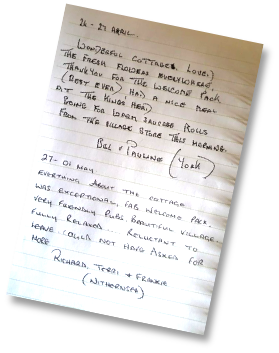 24 - 27 APRIL.
WONDERFUL COTTAGE, LOVELY
THE FRESH FLOWERS EVERYWHERE,
THANKYOU FOR THE WELCOME PACK
(BEST EVER) HAD A NICE MEAL
AT THE KINGS HEAD
GOING FOR WARM SAUSAGE ROLLS
FROM THE VILLAGE STORE THIS MORNING.
PAULINE (YORK)
27 - 01 MAY
EVERYTHING ABOUT THE COTTAGE
WAS EXCEPTIONAL, FAB WELCOME PACK.
VERY FRIENDLY PUBS. BEAUTIFUL VILLAGE.
FULLY RELAXED.... RELUCTANT TO
LEAVE. COULD NOT HAVE ASKED FOR
MORE
RICHARD, TERRI & FRANKIE
(WITHERNSEA)